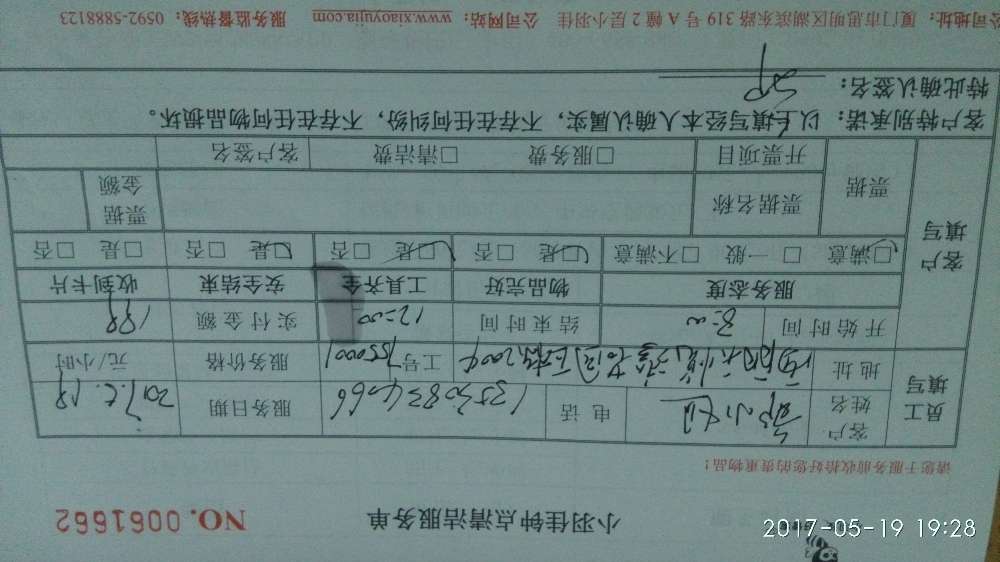 2017-05-19 19:28
小羽佳钟点清洁服务单 NO. 0061662
请您于服务前收拾好您的贵重物品！
员工填写 客户姓名 电话 服务日期
地址 工号 服务价格 元/小时
开始时间 8:00 结束时间 12:00 实付金额 188
客户填写 服务态度 物品完好 工具齐全 安全结束 收到卡片
□满意 □一般 □不满意 □是 □否 □是 □否 □是 □否 □是 □否
票据 票据名称 票据金额
开票项目 □服务费 □清洁费 客户签名
客户特别承诺：以上填写经本人确认属实，不存在任何纠纷，不存在任何物品损坏。
特此确认签名：
公司地址：厦门市思明区湖滨东路 319 号 A 幢 2 层小羽佳 公司网站：www.xiaoyujia.com 服务监督热线：0592-5888123